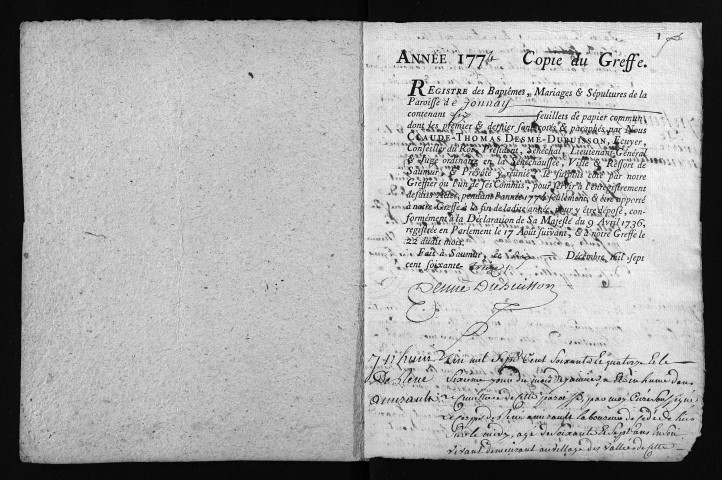 1
ANNÉE 1774 Copie du Greffe.
REGISTRE des Baptêmes, Mariages & Sépultures de la
Paroisse de
contenant feuillets de papier commun
dont les premier & dernier sont cotés & paraphés par Nous
CLAUDE-THOMAS DESMÉ-DUBUISSON, Ecuyer,
Conseiller du Roi, Président, Sénéchal, Lieutenant-Général
& Juge ordinaire en la Sénéchaussée, Ville & Ressort de
Saumur, & Prévôté y réunie, le surplus coté par notre
Greffier ou l'un de ses Commis, pour servir à l'enregistrement
desdits Actes, pendant l'année 1774 seulement, & être apporté
à notre Greffe à la fin de ladite année, pour y être déposé, con-
formément à la Déclaration de Sa Majesté du 9 Avril 1736,
registrée en Parlement le 17 Août suivant, & à notre Greffe le
22 dudit mois.
Fait à Saumur, le Décembre, mil sept
cent soixante treize
Desmé Dubuisson
L'an mil Sept Cent Soixante et quatorze le
Sixieme jour du mois de janvier a été inhumé dans
le Cimetiere de cette paroisse par moy Curé Soussigné
le corps de laboureur
agé de Soixante et Sept ans environ
vivant demeurant au village des Vallées de cette